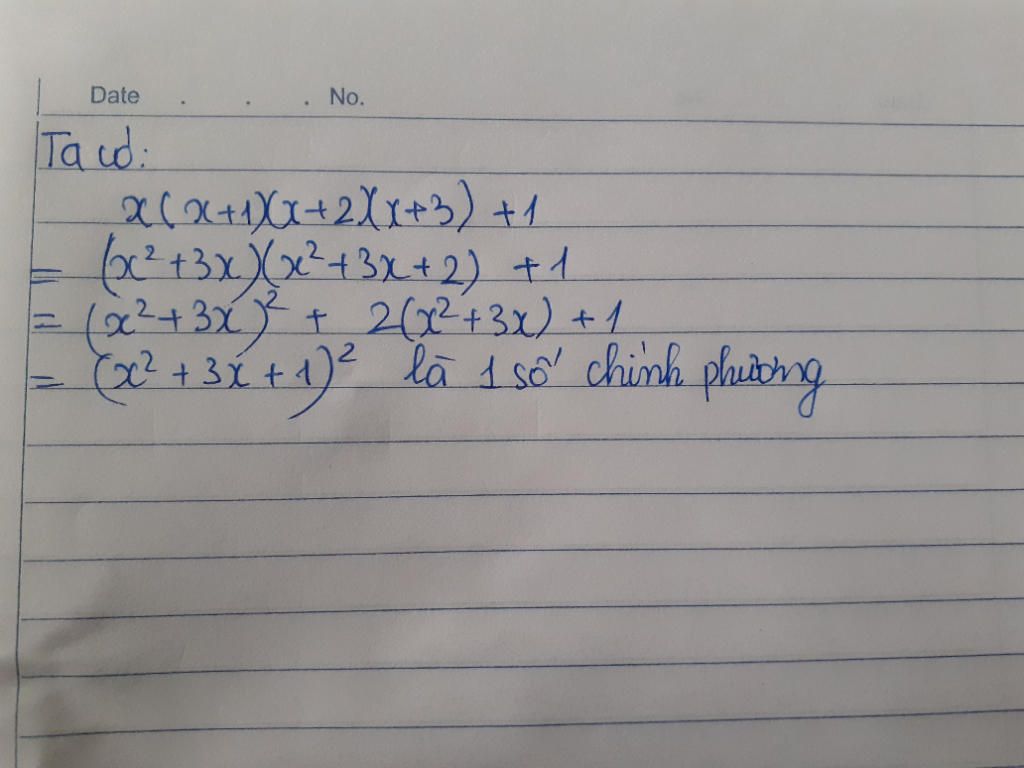 Date . . . No.
Ta có:
x(x+1)(x+2)(x+3) +1
= (x²+3x)(x²+3x+2) +1
= (x²+3x)² + 2(x²+3x) +1
= (x²+3x+1)² là 1 số chính phương